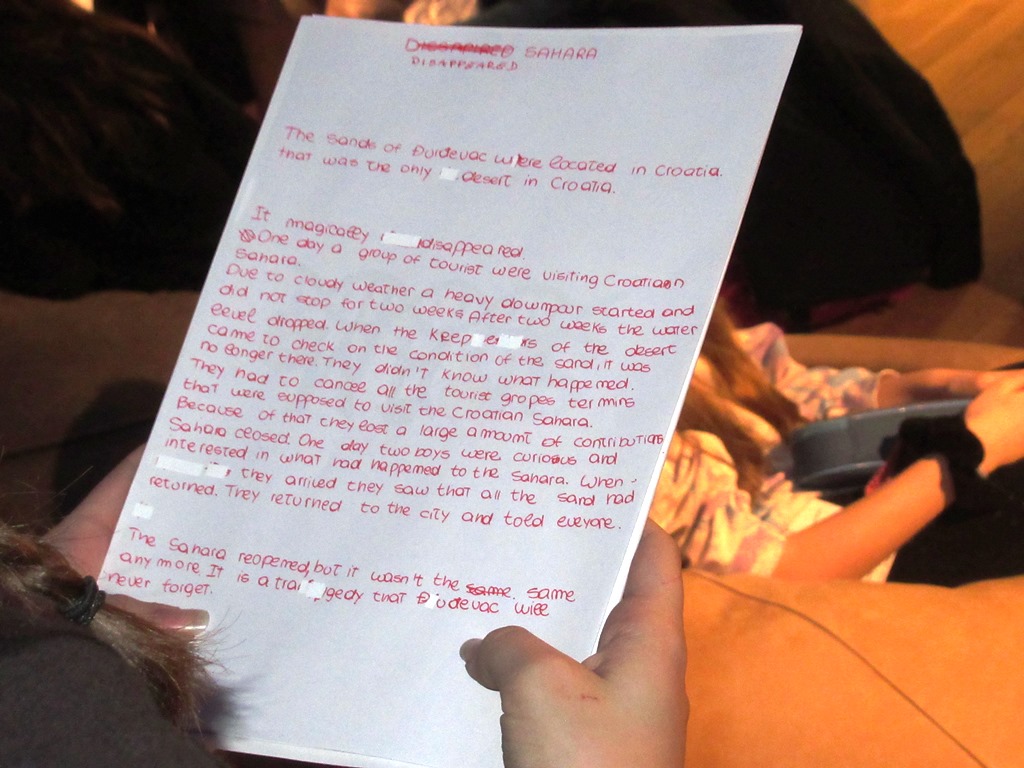 DISAPIRED SAHARA
DISAPPEARED
The sands of Đurđevac were located in Croatia.
that was the only desert in Croatia.
It magically disappeared.
One day a group of tourist were visiting Croatian
Sahara.
Due to cloudy weather a heavy downpour started and
did not stop for two weeks After two weeks the water
level dropped. When the keepers of the desert
came to check on the condition of the sand, it was
no longer there. They didn't know what happemed.
They had to cancel all the tourist gropes termins
that were supposed to visit the Croatian Sahara.
Because of that they lost a large amoumt of contributions
Sahara closed. One day two boys were curiosus and
interested in what had happemed to the Sahara. When
they arrived they saw that all the sand had
returned. They returned to the city and told eveyone.
The Sahara reopemed, but it wasn't the same. same
any more. It is a tragedy that Đurđevac will
never forget.